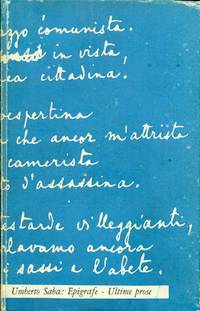 azzo comunista.
in vista,
ea cittadina.
vespertina
che ancor m'attrista
camerista
o d'assassina.
testarde villeggianti,
rlavamo ancora
i sassi e l'abete.
Umberto Saba: Epigrafe - Ultime prose